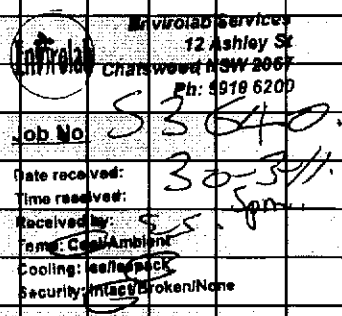 Envirolab Services
12 Ashley St
Envirolab
Chatswood NSW 2067
Ph: 9910 6200
Job No 53640.
Date received: 30-3-11.
Time received: 5pm.
Received by: SS.
Temp: Cool/Ambient
Cooling: Ice/Icepack
Security: Intact/Broken/None